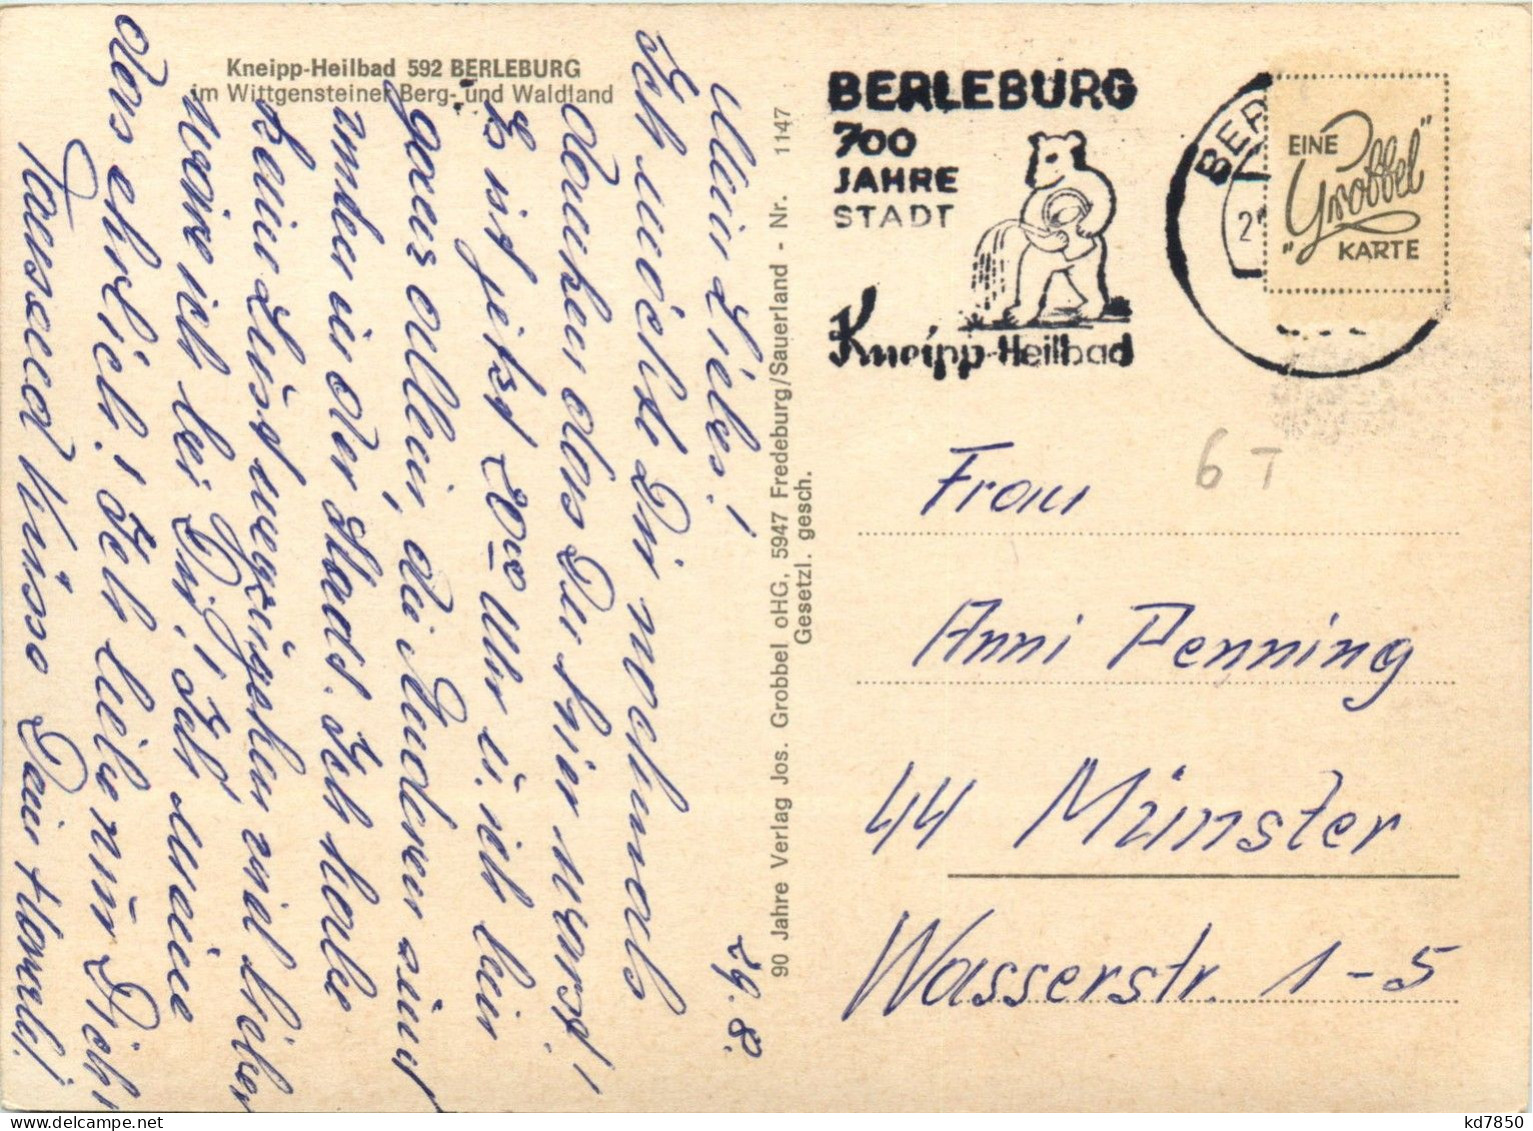 Kneipp-Heilbad 592 BERLEBURG
im Wittgensteiner Berg- und Waldland
29. 8.
Mein Liebes!
Ich möchte Dir nochmals
danken das Du hier warst!
Es ist jetzt 20 00 Uhr u. ich bin
ganz allein, die Anderen sind
unden in der Stadt. Ich habe
keine Lust wegzugehen viel lieber
wäre ich bei Dir! Ich meine
das ehrlich! Ich liebe nur Dich!
Tausend Küsse Dein
90 Jahre Verlag Jos. Grobbel oHG, 5947 Fredeburg/Sauerland - Nr. 1147
Gesetzl. gesch.
BERLEBURG
700
JAHRE
STADT
Kneipp-Heilbad
BER
2
EINE
"Grobbel"
KARTE
6 T
Frau
Anni Penning
44 Münster
Wasserstr. 1-5
kd7850